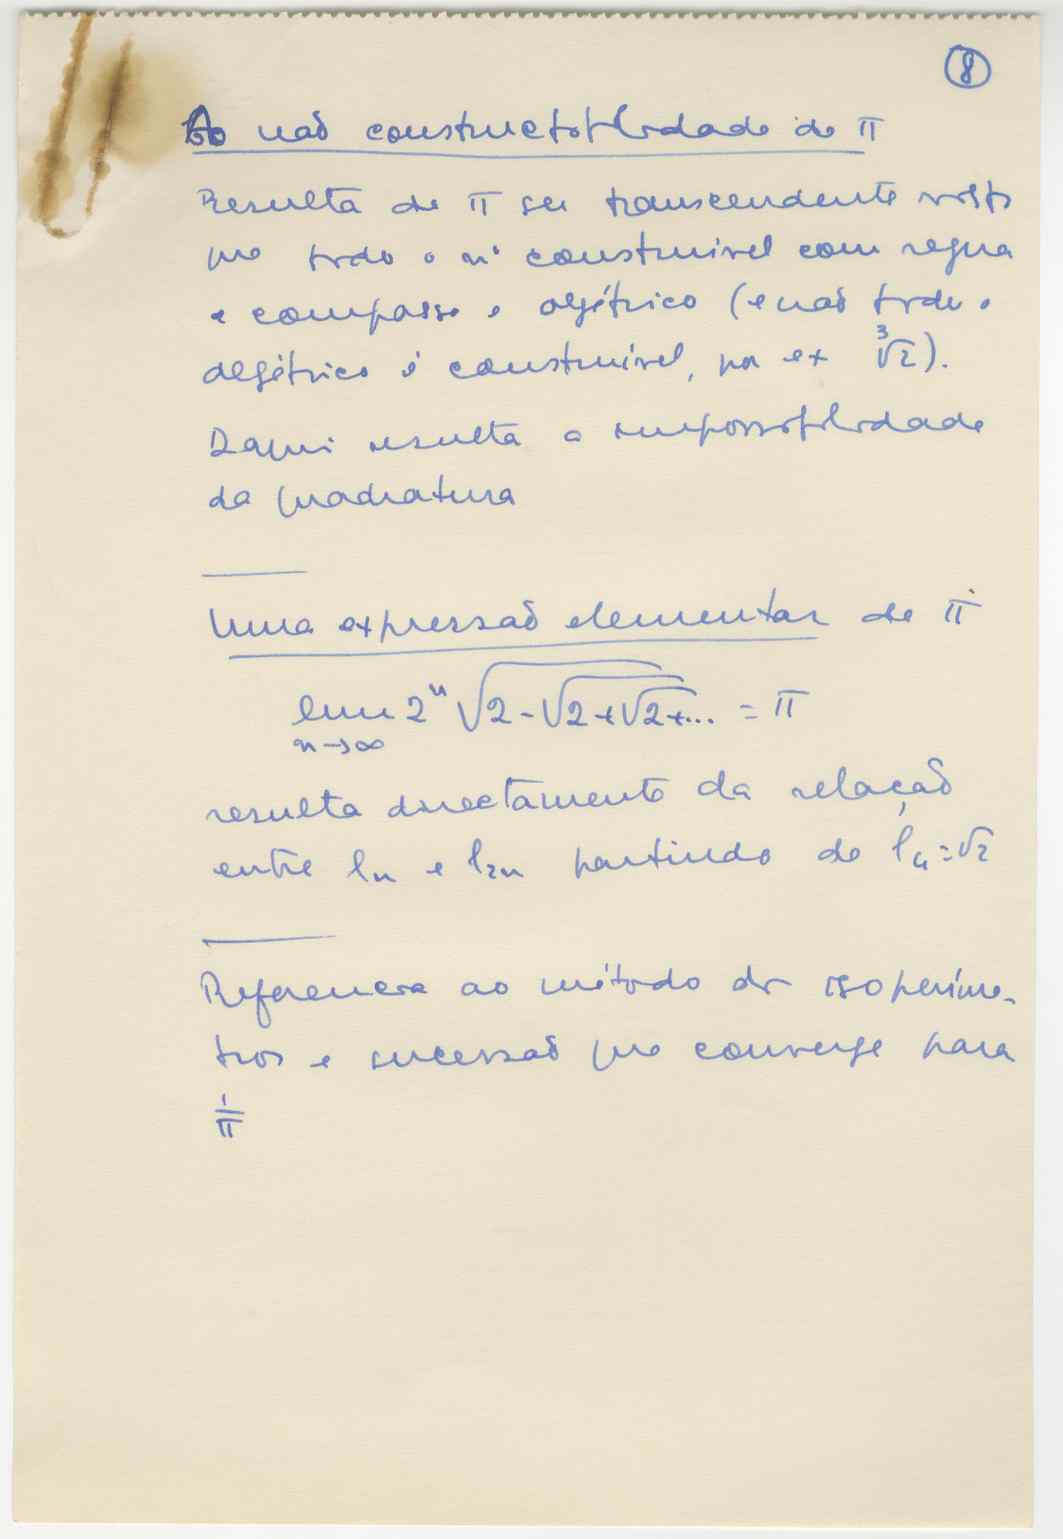 8
A não constructibilidade de π
Resulta de π ser transcendente visto
que todo o nº construível com regua
e compasso é algébrico (e não todo o
algébrico é construível, por ex ∛2).
Daqui resulta a impossibilidade
da quadratura
Uma expressão elementar de π
lim 2ⁿ √(2-√(2+√(2+... = π
n→∞
resulta directamente da relação
entre lₙ e l₂ₙ partindo de l₄=√2
Referencia ao método dos isoperíme-
tros e sucessão que converge para
1/π